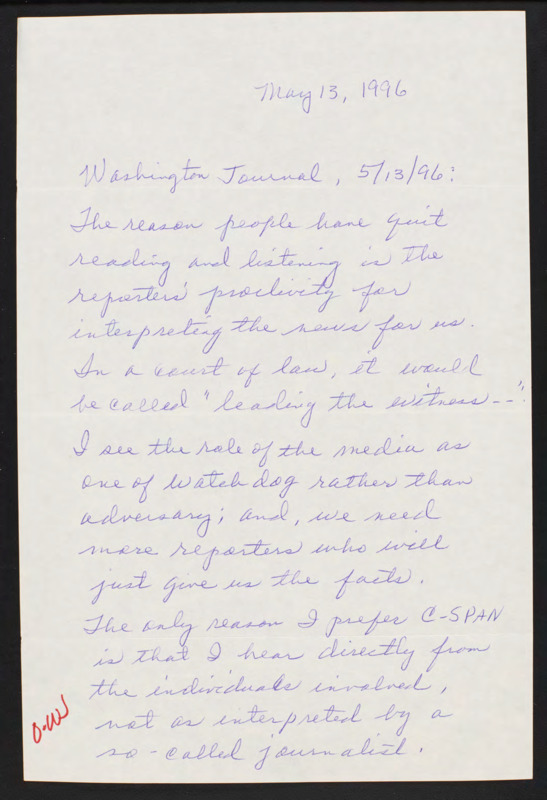 May 13, 1996
Washington Journal, 5/13/96:
The reason people have quit
reading and listening is the
reporters' proclivity for
interpreting the news for us.
In a court of law, it would
be called "leading the witness--".
I see the role of the media as
one of watch dog rather than
adversary; and, we need
more reporters who will
just give us the facts.
The only reason I prefer C-SPAN
is that I hear directly from
the individuals involved,
not as interpreted by a
so-called journalist.